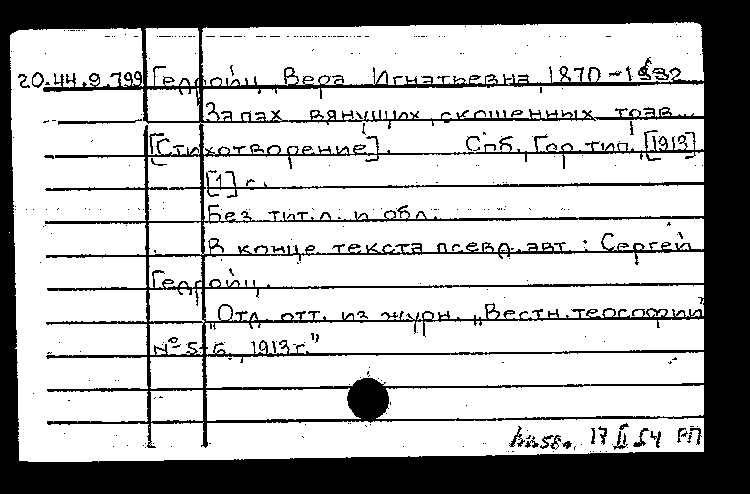 20.44.9.799 Гедройц, Вера Игнатьевна, 1870-1932
Запах вянущих скошенных трав...
[Стихотворение]. Спб., Гор. тип., [1913]
[1] с.
Без тит. л. и обл.
В конце текста псевд. авт.: Сергей
Гедройц.
"Отд. отт. из журн. „Вестн. теософии"
№ 5-6, 1913 г."
17 II 54 РП